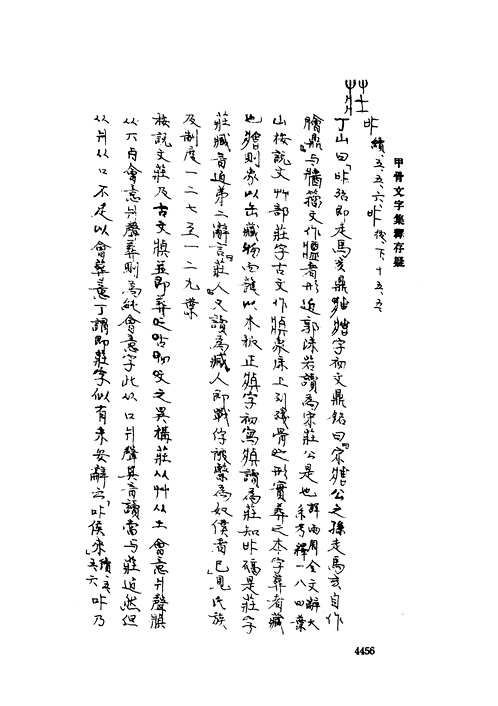 甲骨文字集釋存疑
莊
續、五、五、六、後、下、十、五、五
丁山曰「殆即走馬亥鼎字初文鼎銘曰『宋公之孫走馬亥自作
鼎』与牆籀文作者形近郭沫若讀為宋莊公是也詳兩周金文辭大系考釋一八四葉
山按說文艸部莊字古文作象牀上列殘骨之形實葬之本字葬者藏
也則象以缶藏物而護以木板正字初寫讀為莊知確是莊字
莊臧音近第二辭言『莊人』又讀為臧人即戰俘詼繫為奴僕者」已甩氏族
及制度一二七至一二九葉
按說文莊及古文並即葬之古初文之異構莊从艸从土會意爿聲
从丌冎會意爿聲葬則為純會意字此从口爿聲其音讀當与莊近然但
从爿从口不足以會葬意丁謂即莊字似有未安辭云「侯來」續、五、五、六乃
4456